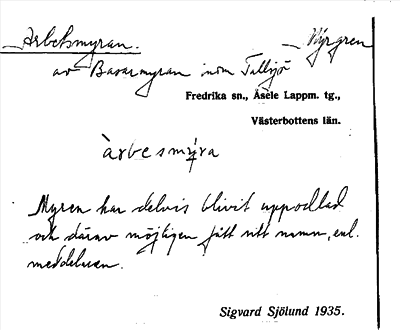 Arbetsmyran. — Myrgren
av Basarmyran inom Tallsjö
Fredrika sn., Åsele Lappm. tg.,
Västerbottens län.
àrbesmýra
Myren har delvis blivit uppodlad
och därav möjligen fått sitt namn, enl.
meddelaren.
Sigvard Sjölund 1935.